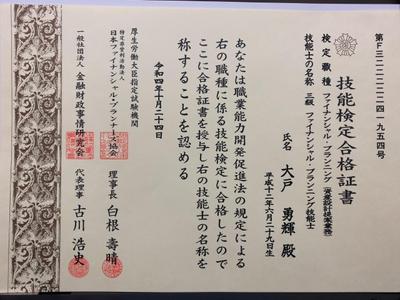 技能検定合格証書
第F三二一二二二四一九五四号
検定職種 ファイナンシャル・プランニング(資産設計提案業務)
技能士の名称 三級 ファイナンシャル・プランニング技能士
氏名 大戸 勇輝 殿
平成十二年六月二十九日生
あなたは職業能力開発促進法の規定による
右の職種に係る技能検定に合格したので
ここに合格証書を授与し右の技能士の名称を
称することを認める
令和四年十月二十四日
厚生労働大臣指定試験機関
特定非営利活動法人
日本ファイナンシャル・プランナーズ協会
理事長 白根 壽晴
一般社団法人 金融財政事情研究会
代表理事 古川 浩史